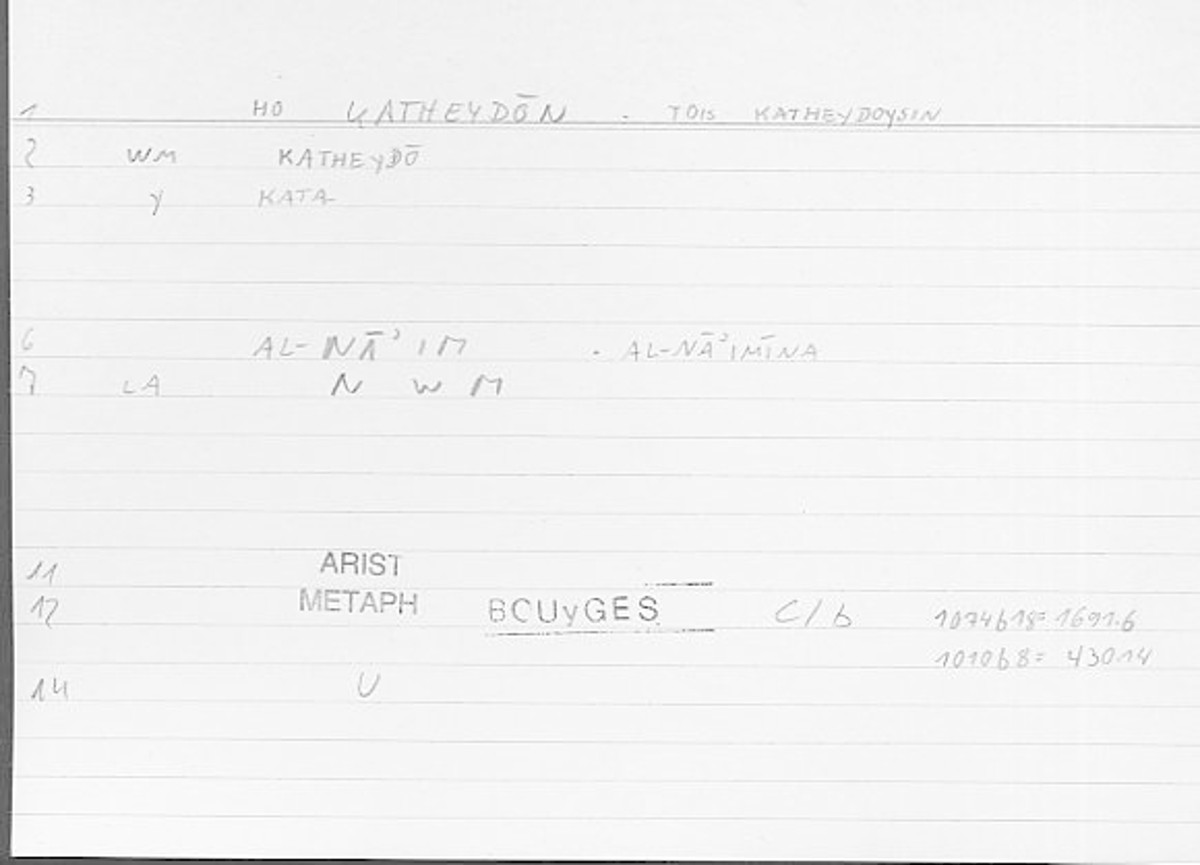 1 HO KATHEYDŌN . TOIS KATHEYDOYSIN
2 WM KATHEYDŌ
3 Y KATA
6 AL-NĀʾIM . AL-NĀʾIMĪNA
7 LA N W M
11 ARIST
12 METAPH BOUYGES C/b 1074b18=1691.6
1010b8= 430.14
14 U